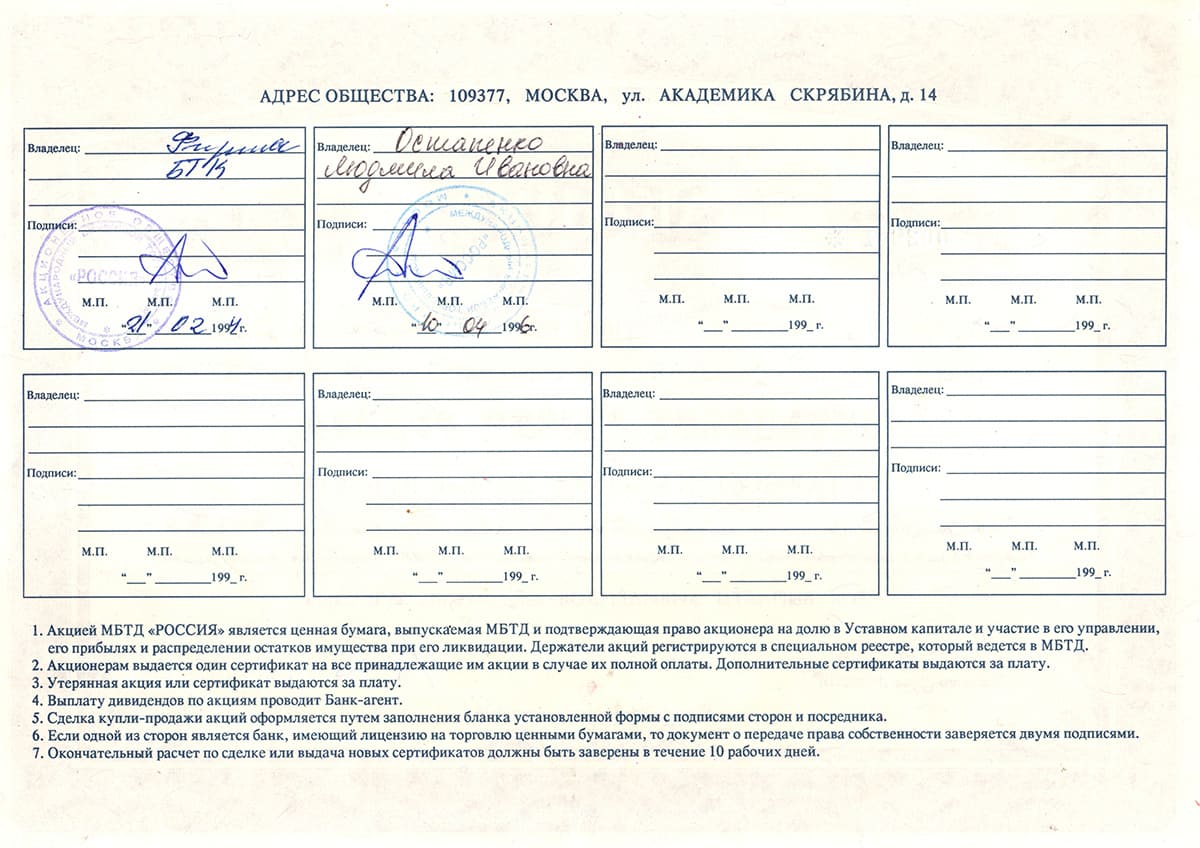 АДРЕС ОБЩЕСТВА: 109377, МОСКВА, ул. АКАДЕМИКА СКРЯБИНА, д. 14
Владелец: Фирма
БТК
Подписи:
АКЦИОНЕРНОЕ ОБЩЕСТВО
«РОССИЯ»
МОСКВА
М.П. М.П. М.П.
“21” 02 1994 г.
Владелец: Остапенко
Людмила Ивановна
Подписи:
«РОССИЯ»
М.П. М.П. М.П.
“10” 04 1996 г.
Владелец:
Подписи:
М.П. М.П. М.П.
“__” ________199_ г.
Владелец:
Подписи:
М.П. М.П. М.П.
“__” ________199_ г.
Владелец:
Подписи:
М.П. М.П. М.П.
“__” ________199_ г.
Владелец:
Подписи:
М.П. М.П. М.П.
“__” ________199_ г.
Владелец:
Подписи:
М.П. М.П. М.П.
“__” ________199_ г.
Владелец:
Подписи:
М.П. М.П. М.П.
“__” ________199_ г.
1. Акцией МБТД «РОССИЯ» является ценная бумага, выпускаемая МБТД и подтверждающая право акционера на долю в Уставном капитале и участие в его управлении,
его прибылях и распределении остатков имущества при его ликвидации. Держатели акций регистрируются в специальном реестре, который ведется в МБТД.
2. Акционерам выдается один сертификат на все принадлежащие им акции в случае их полной оплаты. Дополнительные сертификаты выдаются за плату.
3. Утерянная акция или сертификат выдаются за плату.
4. Выплату дивидендов по акциям проводит Банк-агент.
5. Сделка купли-продажи акций оформляется путем заполнения бланка установленной формы с подписями сторон и посредника.
6. Если одной из сторон является банк, имеющий лицензию на торговлю ценными бумагами, то документ о передаче права собственности заверяется двумя подписями.
7. Окончательный расчет по сделке или выдача новых сертификатов должны быть заверены в течение 10 рабочих дней.